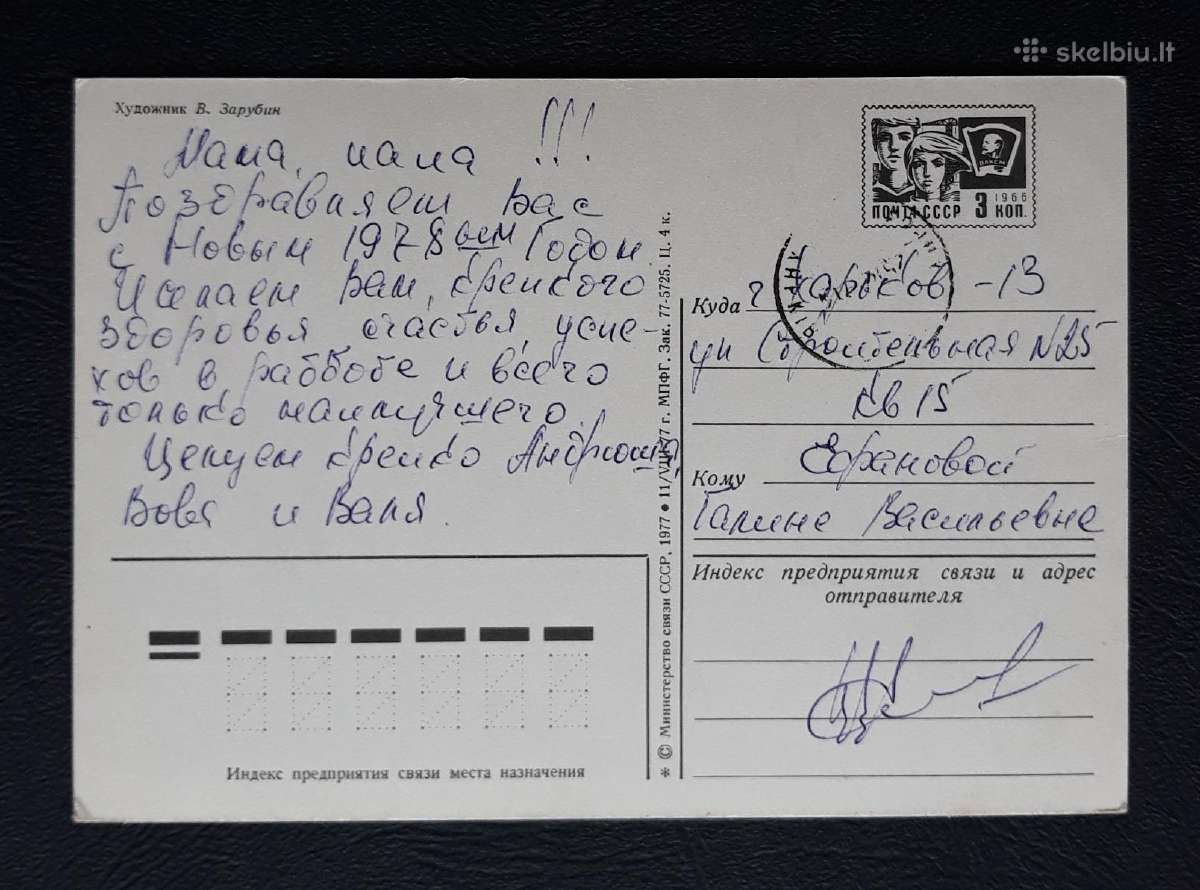 skelbiu.lt
Художник В. Зарубин
Мама, папа !!!
Поздравляем Вас
с Новым 1978ым Годом.
Желаем Вам, крепкого
здоровья, счастья, успе-
хов в рабботе и всего
только наилучшего.
Целуем крепко Андрюша,
Вова и Валя.
ВЛКСМ
1966
ПОЧТА СССР 3 КОП.
Куда г Харьков -13
ул Строительная N25
кв 15
Кому
Галине Васильевне
Индекс предприятия связи и адрес
отправителя
Индекс предприятия связи места назначения
* © Министерство связи СССР, 1977 ● 11/VIII-77 г. МПФГ. Зак. 77-5725. Ц. 4 к.